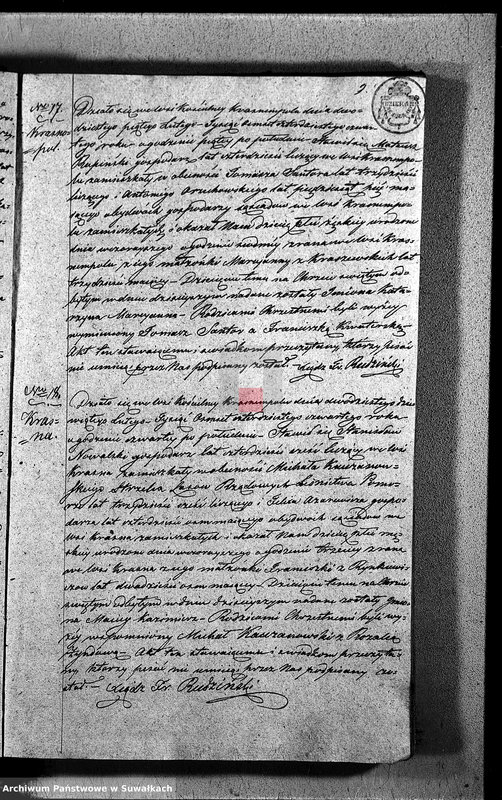 2.
No 17.
Krasno-
pol.
Działo się we Wsi Kościelney Krasnempolu dnia dwu-
dziestego piątego Lutego Tysiąc Osmset czterdziestego czwar-
tego roku o godzinie piątey po południu Stawił się Mateusz
gospodarz lat czterdzieści liczący we Wsi Krasnem-
polu zamieszkały w obecności Tomasza Santora lat trzydzieści
liczącego i Antoniego Orzechowskiego lat pięćdziesiąt pięć ma-
iącego obydwóch gospodarzy we Wsi Krasnempo-
lu zamieszkałych, i okazał Nam dziecię płci żeńskiej urodzone
dnia wczorayszego o godzinie siódmey z rana we Wsi Kras-
nempolu, z iego małżonki Maryanny z Kraszewskich lat
trzydzieści maiącey – Dziecięciu temu na Chrzcie świętym od-
bytym w dniu dzisieyszym nadane zostały Imiona Kata-
rzyna Maryanna – Rodzicami Chrzestnemi byli wyżey
wymieniony Tomasz Santor z Franciszką Kwaterską –
Akt ten stawaiącemu i świadkom przeczytany, którzy pisać
nie umieią, przez Nas podpisany został. – Xiądz Fr. Rudziński
No 18.
Kras-
na.
Działo się we Wsi Kościelney Krasnempolu dnia dwudziestego dzie-
wiątego Lutego – Tysiąc Osmset czterdziestego czwartego roku
o godzinie czwartey po południu – Stawił się Stanisław
Nowalski gospodarz lat czterdzieści sześć liczący we Wsi
Krasne zamieszkały w obecności Michała Kaczanow-
skiego Strzelca Lasów Rządowych Leśnictwa Pomo-
rze lat trzydzieści sześć liczącego i Felixa Azarewicza gospo-
darza lat czterdzieści osm maiącego obydwóch we
Wsi Krasne zamieszkałych i okazał Nam dziecię płci mę-
skiey urodzone dnia wczorayszego o godzinie trzeciey z rana
we Wsi Krasne z iego małżonki Franciszki z Rynkiewi-
czów lat dwadzieścia osm maiącey – Dziecięciu temu na Chrzcie
świętym odbytym w dniu dzisieyszym nadane zostały Imio-
na Maciey Kazimierz – Rodzicami Chrzestnemi byli wy-
żey wspomniony Michał Kaczanowski z Rozalią
– Akt ten stawaiącemu i świadkom przeczyta-
ny, którzy pisać nie umieią przez Nas podpisany zo-
stał. – Xiądz Fr. Rudziński
Archiwum Państwowe w Suwałkach